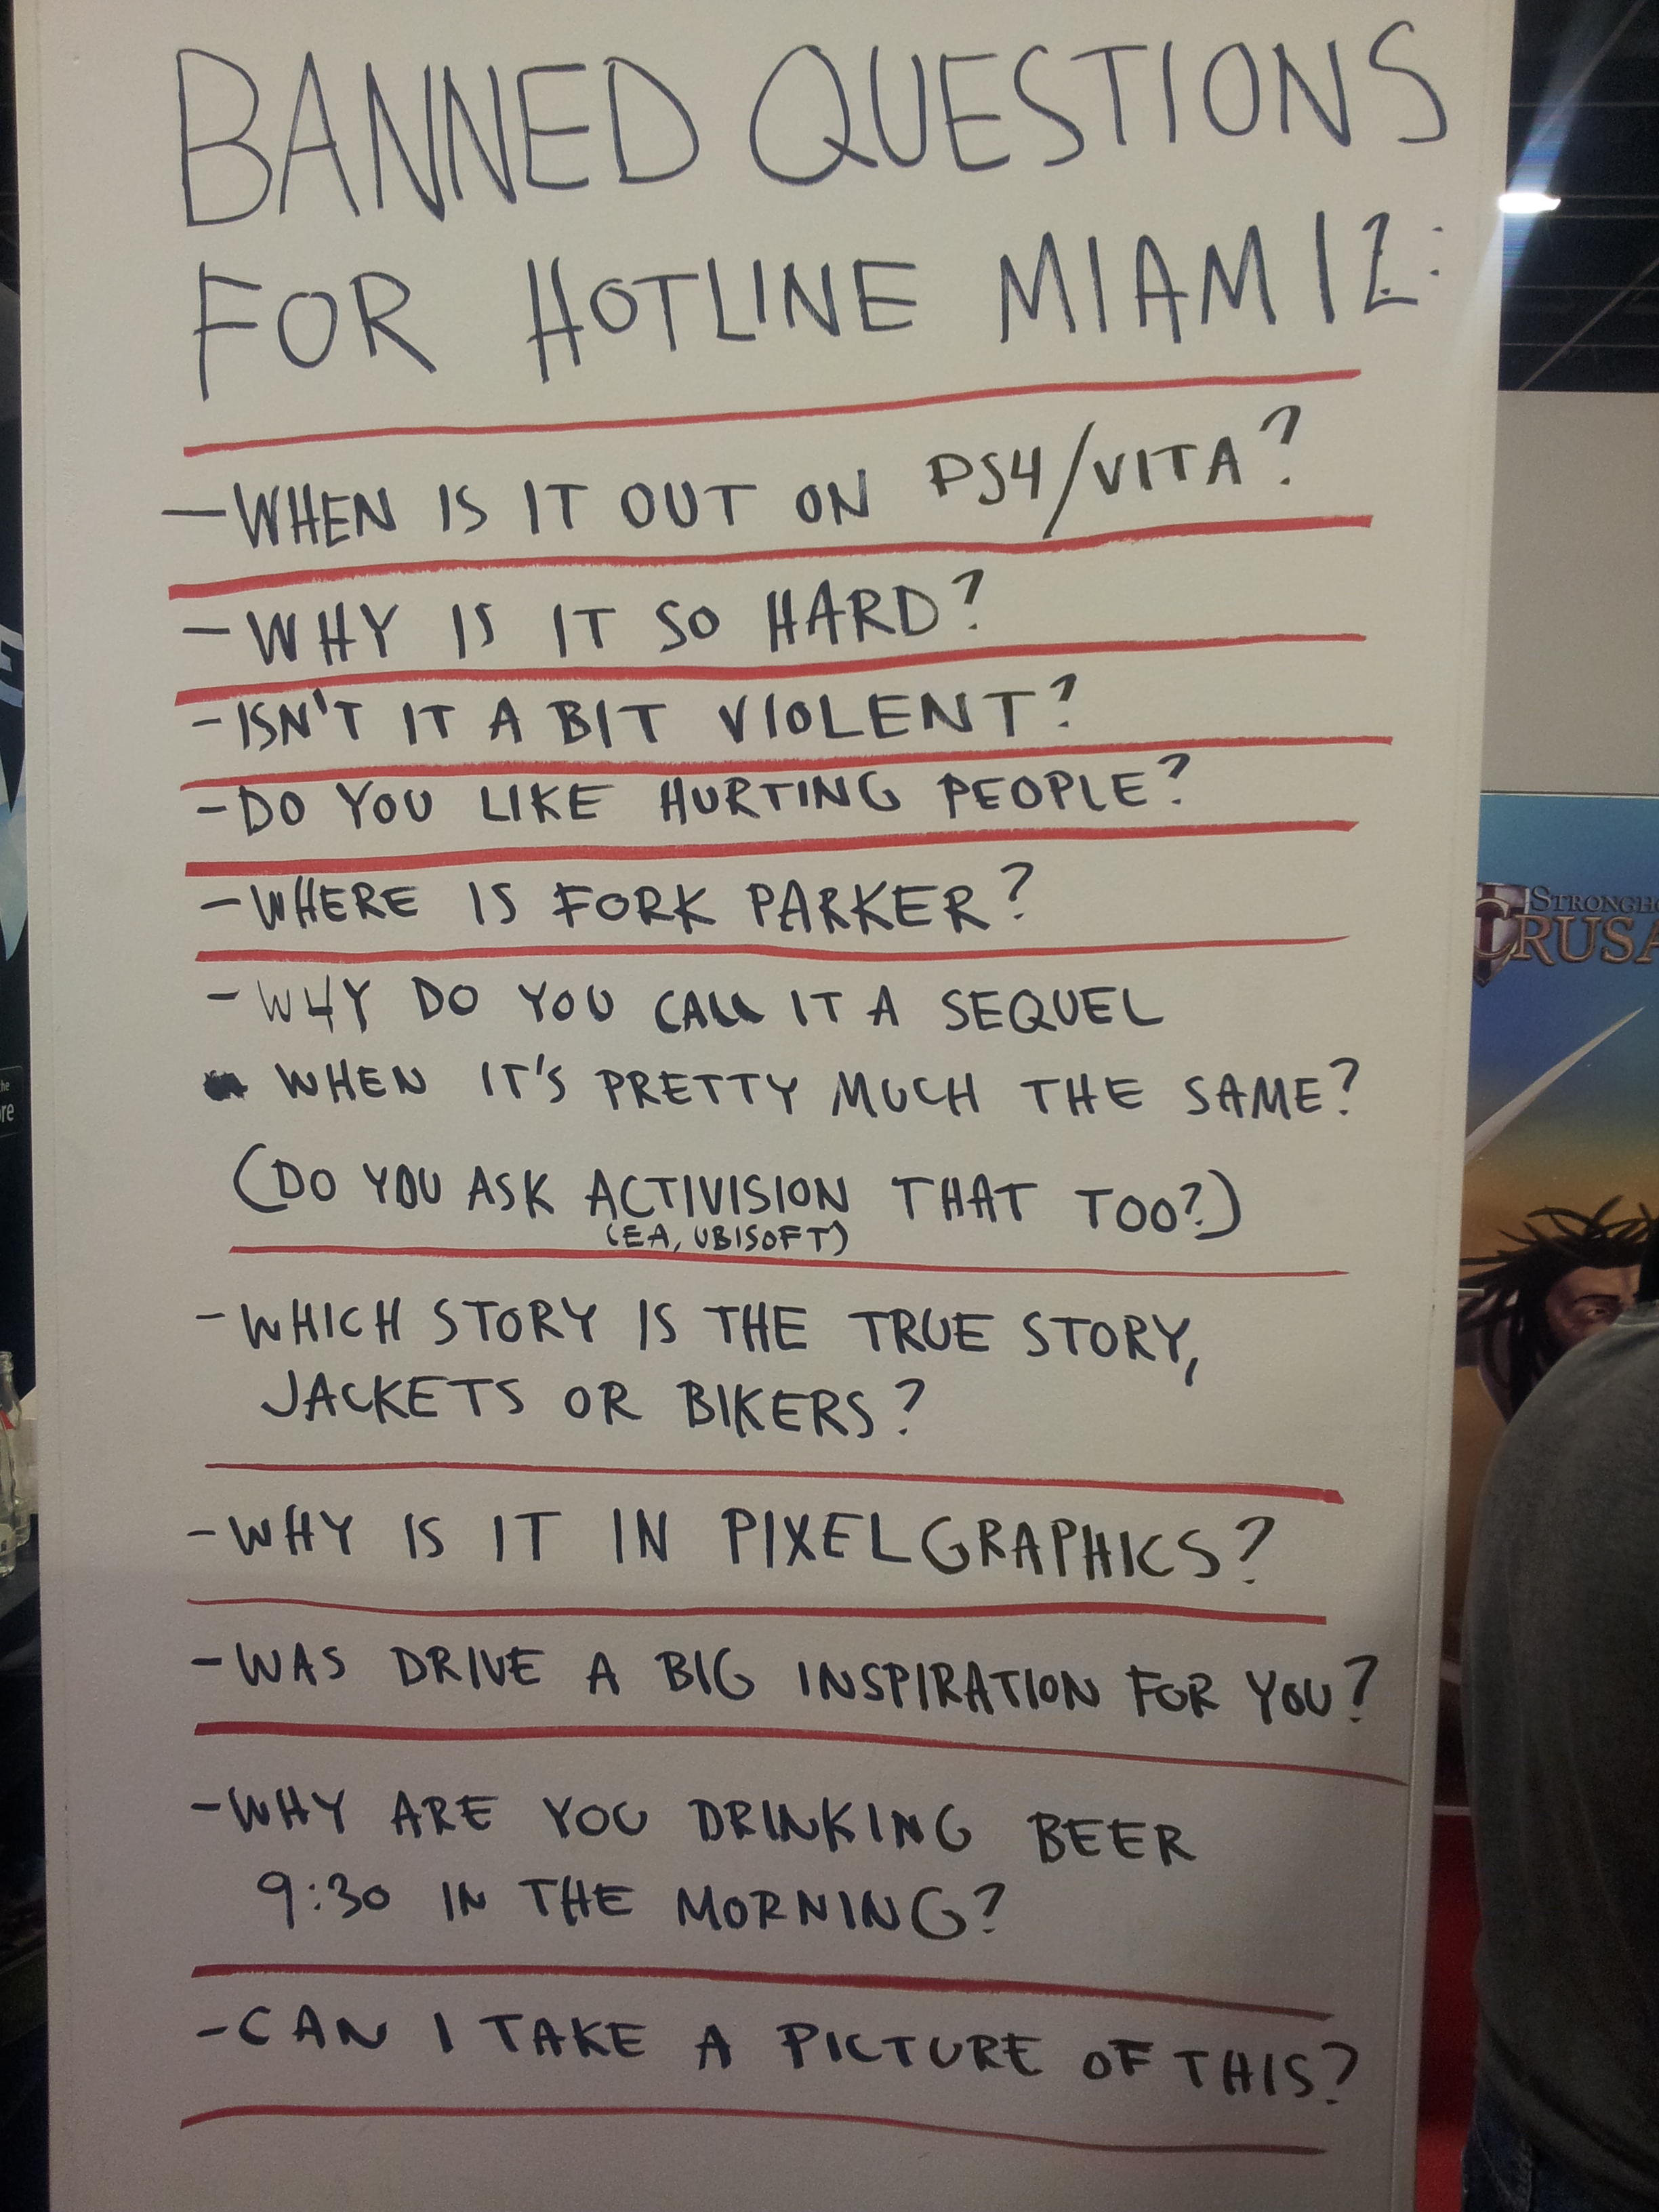 BANNED QUESTIONS
FOR HOTLINE MIAMI 2:
-WHEN IS IT OUT ON PS4/VITA?
-WHY IS IT SO HARD?
-ISN'T IT A BIT VIOLENT?
-DO YOU LIKE HURTING PEOPLE?
-WHERE IS FORK PARKER?
-WHY DO YOU CALL IT A SEQUEL
WHEN IT'S PRETTY MUCH THE SAME?
(DO YOU ASK ACTIVISION THAT TOO?)
(EA, UBISOFT)
-WHICH STORY IS THE TRUE STORY,
JACKETS OR BIKERS?
-WHY IS IT IN PIXELGRAPHICS?
-WAS DRIVE A BIG INSPIRATION FOR YOU?
-WHY ARE YOU DRINKING BEER
9:30 IN THE MORNING?
-CAN I TAKE A PICTURE OF THIS?